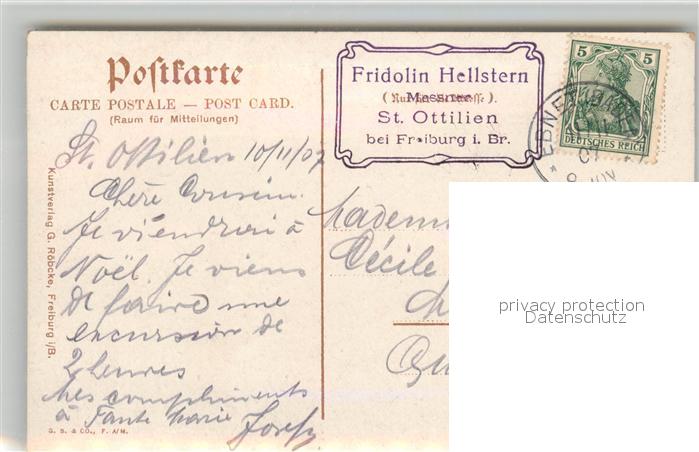 Postkarte
CARTE POSTALE — POST CARD.
(Raum für Mitteilungen)
Fridolin Hellstern
Messner
St. Ottilien
bei Freiburg i. Br.
5 5
DEUTSCHES REICH
EBNET
St. Ottilien 10/11/07
Chère Cousine.
Je viendrai à
Noël. Je viens
de faire une
excursion de
2 heures
Mes compliments
à Tante Marie
Joseph
Cécile
Kunstverlag G. Röbcke, Freiburg i/B.
G. S. & CO., F. A/M.
privacy protection
Datenschutz